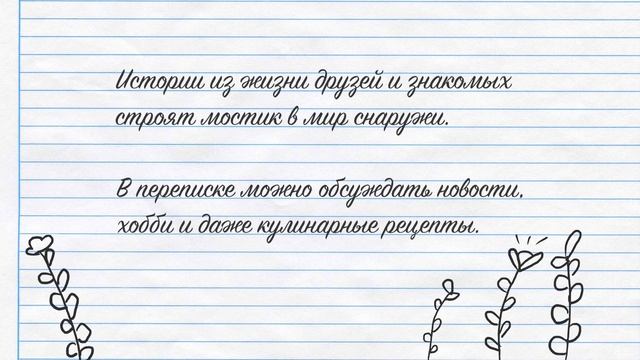 Истории из жизни друзей и знакомых
строят мостик в мир снаружи.
В переписке можно обсуждать новости,
хобби и даже кулинарные рецепты.